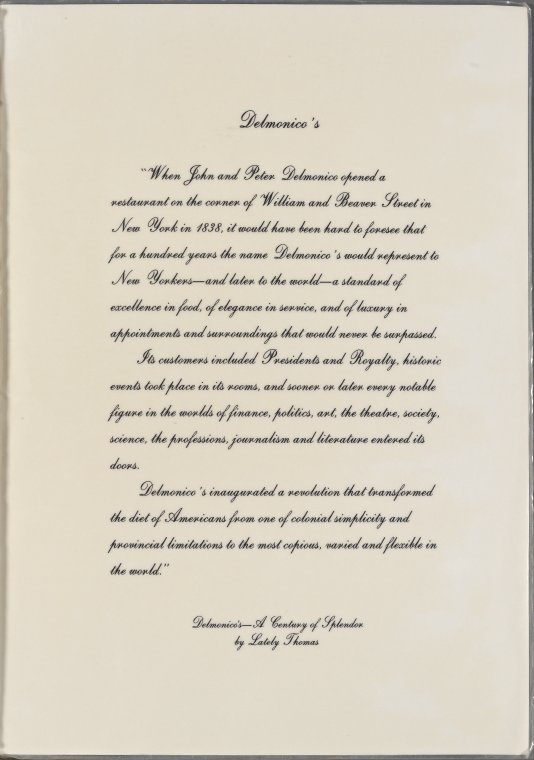 Delmonico's
"When John and Peter Delmonico opened a
restaurant on the corner of William and Beaver Street in
New York in 1838, it would have been hard to foresee that
for a hundred years the name Delmonico's would represent to
New Yorkers—and later to the world—a standard of
excellence in food, of elegance in service, and of luxury in
appointments and surroundings that would never be surpassed.
Its customers included Presidents and Royalty, historic
events took place in its rooms, and sooner or later every notable
figure in the worlds of finance, politics, art, the theatre, society,
science, the professions, journalism and literature entered its
doors.
Delmonico's inaugurated a revolution that transformed
the diet of Americans from one of colonial simplicity and
provincial limitations to the most copious, varied and flexible in
the world."
Delmonico's—A Century of Splendor
by Lately Thomas